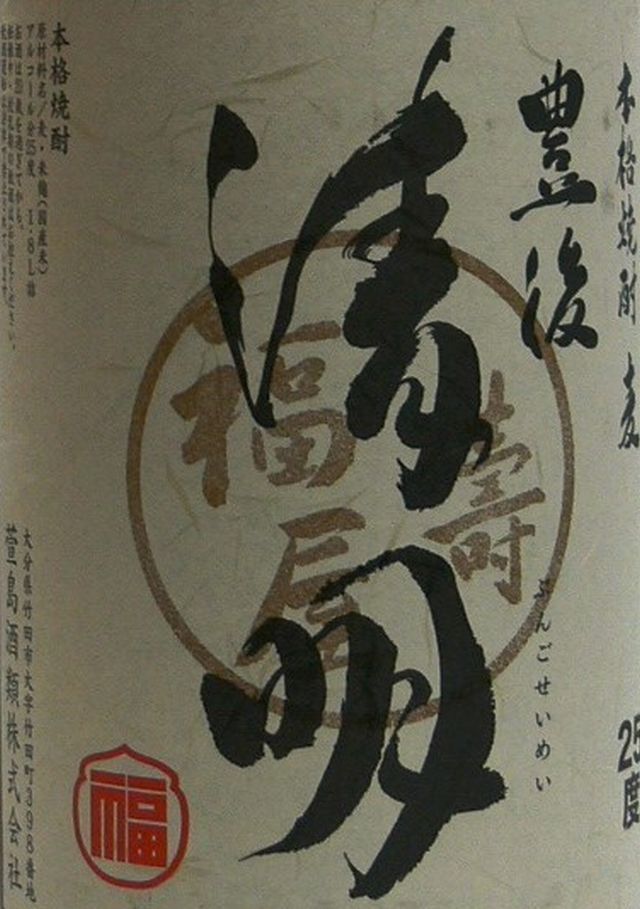 本格焼酎 麦
25度
豊後
ぶんごせいめい
清明
壽
福
屋
本格焼酎
原材料名/麦・米麹(国産米)
アルコール分25度 1.8L詰
お酒は20歳を過ぎてから。
大分県竹田市大字竹田町398番地
萱島酒類株式会社
福